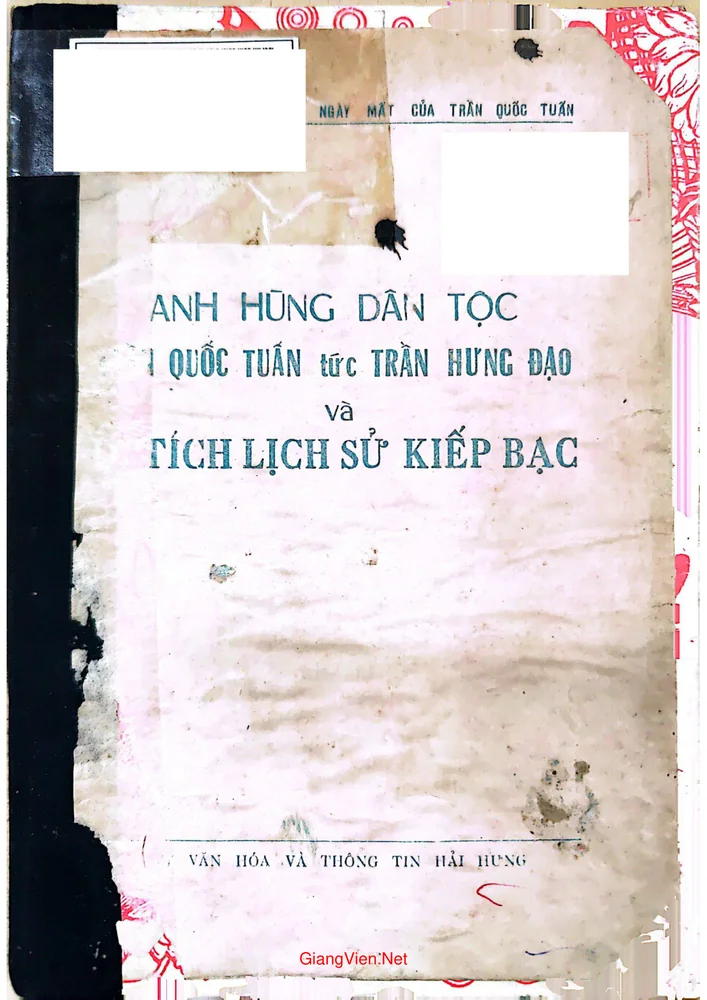 NGÀY MẤT CỦA TRẦN QUỐC TUẤN
ANH HÙNG DÂN TỘC
QUỐC TUẤN tức TRẦN HƯNG ĐẠO
và
TÍCH LỊCH SỬ KIẾP BẠC
VĂN HÓA VÀ THÔNG TIN HẢI HƯNG
GiangVien.Net